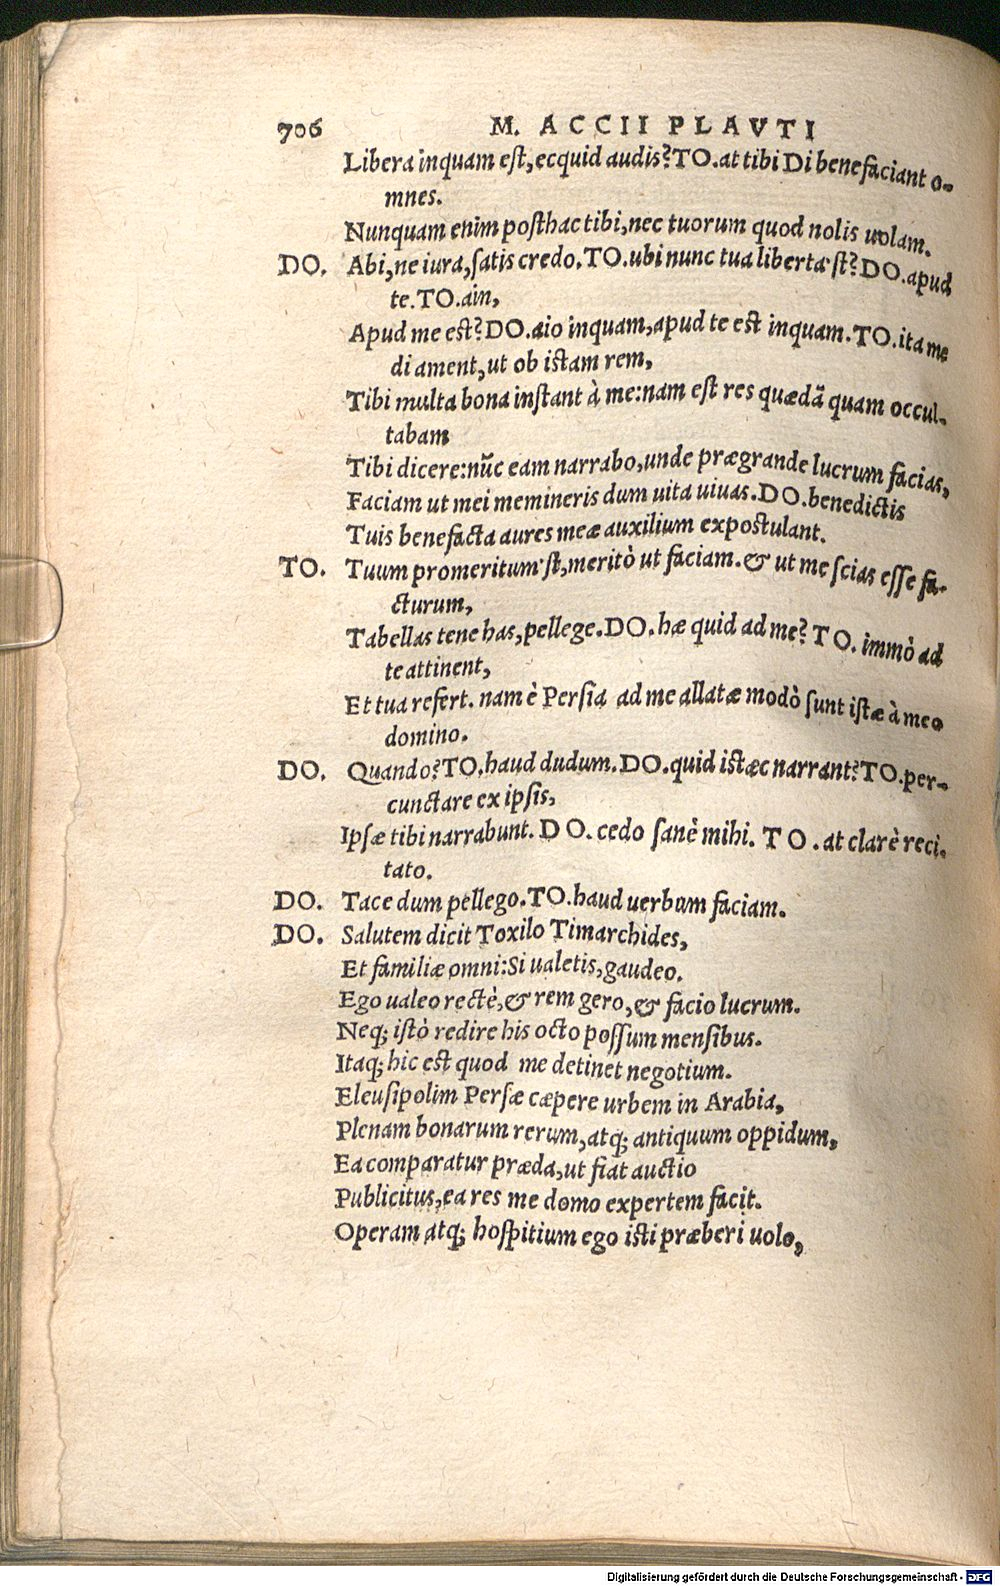 706 M. ACCII PLAVTI
Libera inquam est, ecquid audis? TO. at tibi Di benefaciant o-
mnes.
Nunquam enim posthac tibi, nec tuorum quod nolis uolam.
DO. Abi, ne iura, satis credo. TO. ubi nunc tua liberta'st? DO. apud
te. TO. ain,
Apud me est? DO. aio inquam, apud te est inquam. TO. ita me
di ament, ut ob istam rem,
Tibi multa bona instant à me: nam est res quædã quam occul-
tabam
Tibi dicere: nũc eam narrabo, unde prægrande lucrum facias,
Faciam ut mei memineris dum uita uiuas. DO. benedictis
Tuis benefacta aures meæ auxilium expostulant.
TO. Tuum promeritum'st, meritò ut faciam. & ut me scias esse fa-
cturum,
Tabellas tene has, pellege. DO. hæ quid ad me? TO. immò ad
te attinent,
Et tua refert. nam è Persia ad me allatæ modò sunt istæ à meo
domino.
DO. Quando? TO. haud dudum. DO. quid istæc narrant? TO. per-
cunctare ex ipsis,
Ipsæ tibi narrabunt. DO. cedo sanè mihi. TO. at clarè reci-
tato.
DO. Tace dum pellego. TO. haud uerbum faciam.
DO. Salutem dicit Toxilo Timarchides,
Et familiæ omni: Si ualetis, gaudeo.
Ego ualeo rectè, & rem gero, & facio lucrum.
Neq; istò redire his octo possum mensibus.
Itaq; hic est quod me detinet negotium.
Eleusipolim Persæ cæpere urbem in Arabia,
Plenam bonarum rerum, atq; antiquum oppidum,
Ea comparatur præda, ut fiat auctio
Publicitus, ea res me domo expertem facit.
Operam atq; hospitium ego isti præberi uolo,
Digitalisierung gefördert durch die Deutsche Forschungsgemeinschaft - DFG